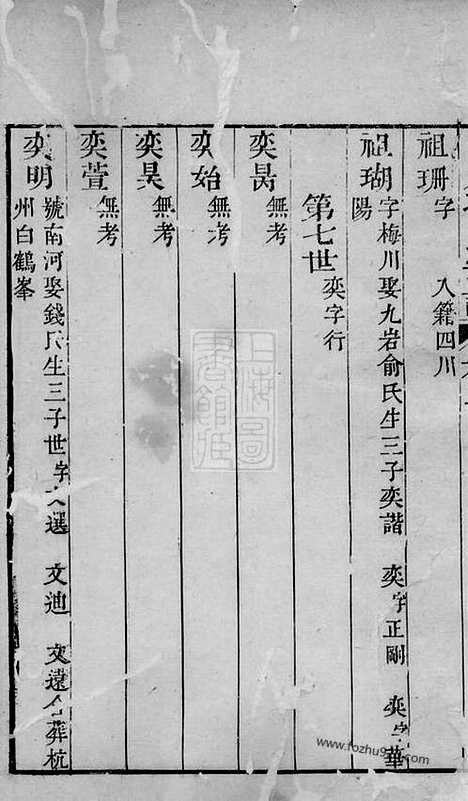 祖珊字　入籍四川
祖瑚字梅川娶九岩俞氏生三子奕諧　奕字正剛　奕字華
陽
第七世奕字行
奕昺無考
奕始無考
奕昊無考
奕萱無考
奕明號南河娶錢氏生三子世字文選　文迪　文遠合葬杭
州白鶴峯
上海圖書館藏
www.fozhu920.com